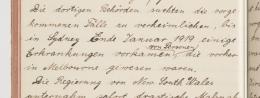 Die dortigen Behörden suchten die vorge
kommenen Fälle zu verheimlichen, bis
in Sydney Ende Januar 1919 einige
Erkrankungen von Personen vorkamen, die vorher
in Melbourne gewesen waren.
Die Regierung von New South Wales
unternahm sofort drastische